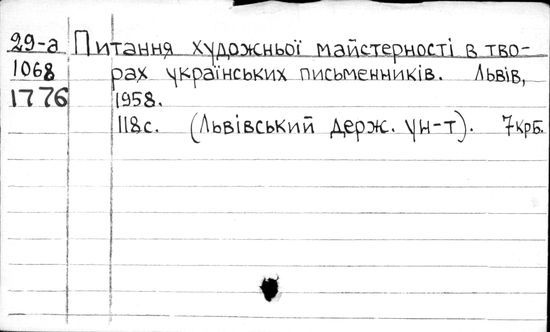 29-а Питання художньої майстерності в тво-
1068 рах українських письменників. Львів,
1776 1958.
118с. (Львівський держ. ун-т). 7крб.